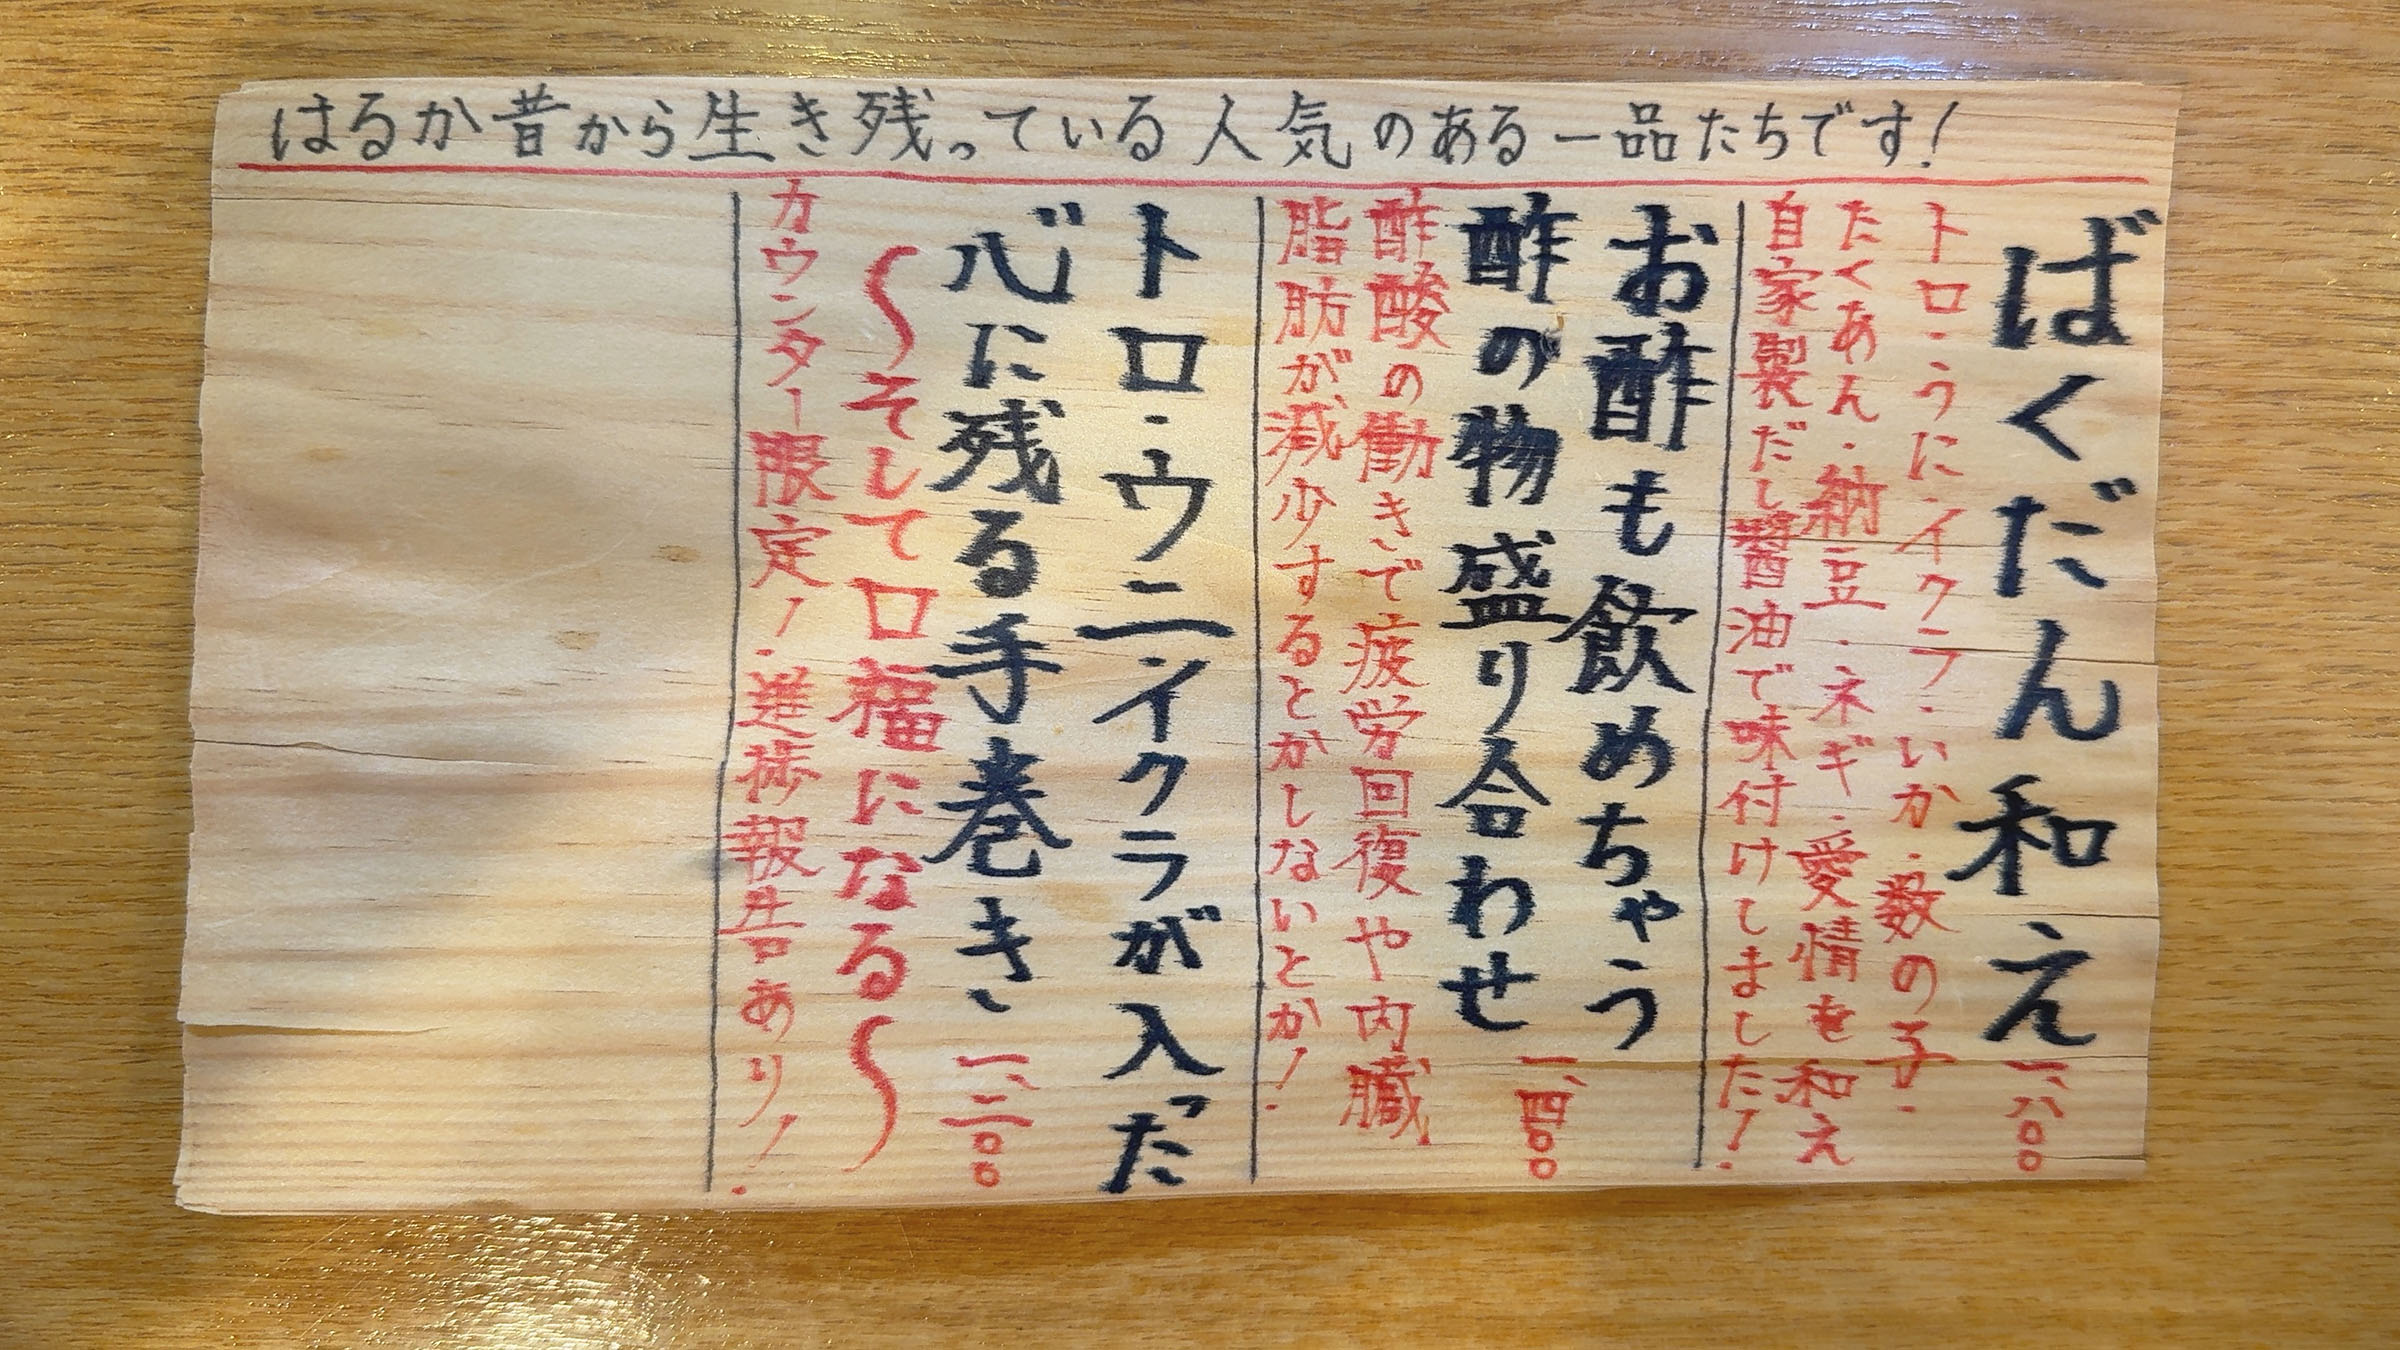 はるか昔から生き残っている人気のある一品たちです!
ばくだん和え 一、八〇〇
トロ・うに・イクラ・いか・数の子・
たくあん・納豆・ネギ・愛情を和え
自家製だし醤油で味付けしました!
お酢も飲めちゃう
酢の物盛り合わせ 一、四〇〇
酢酸の働きで疲労回復や内臓
脂肪が減少するとかしないとか!
トロ・ウニ・イクラが入った
心に残る手巻き 一、二〇〇
〜そして口福になる〜
カウンター限定!進捗報告あり!